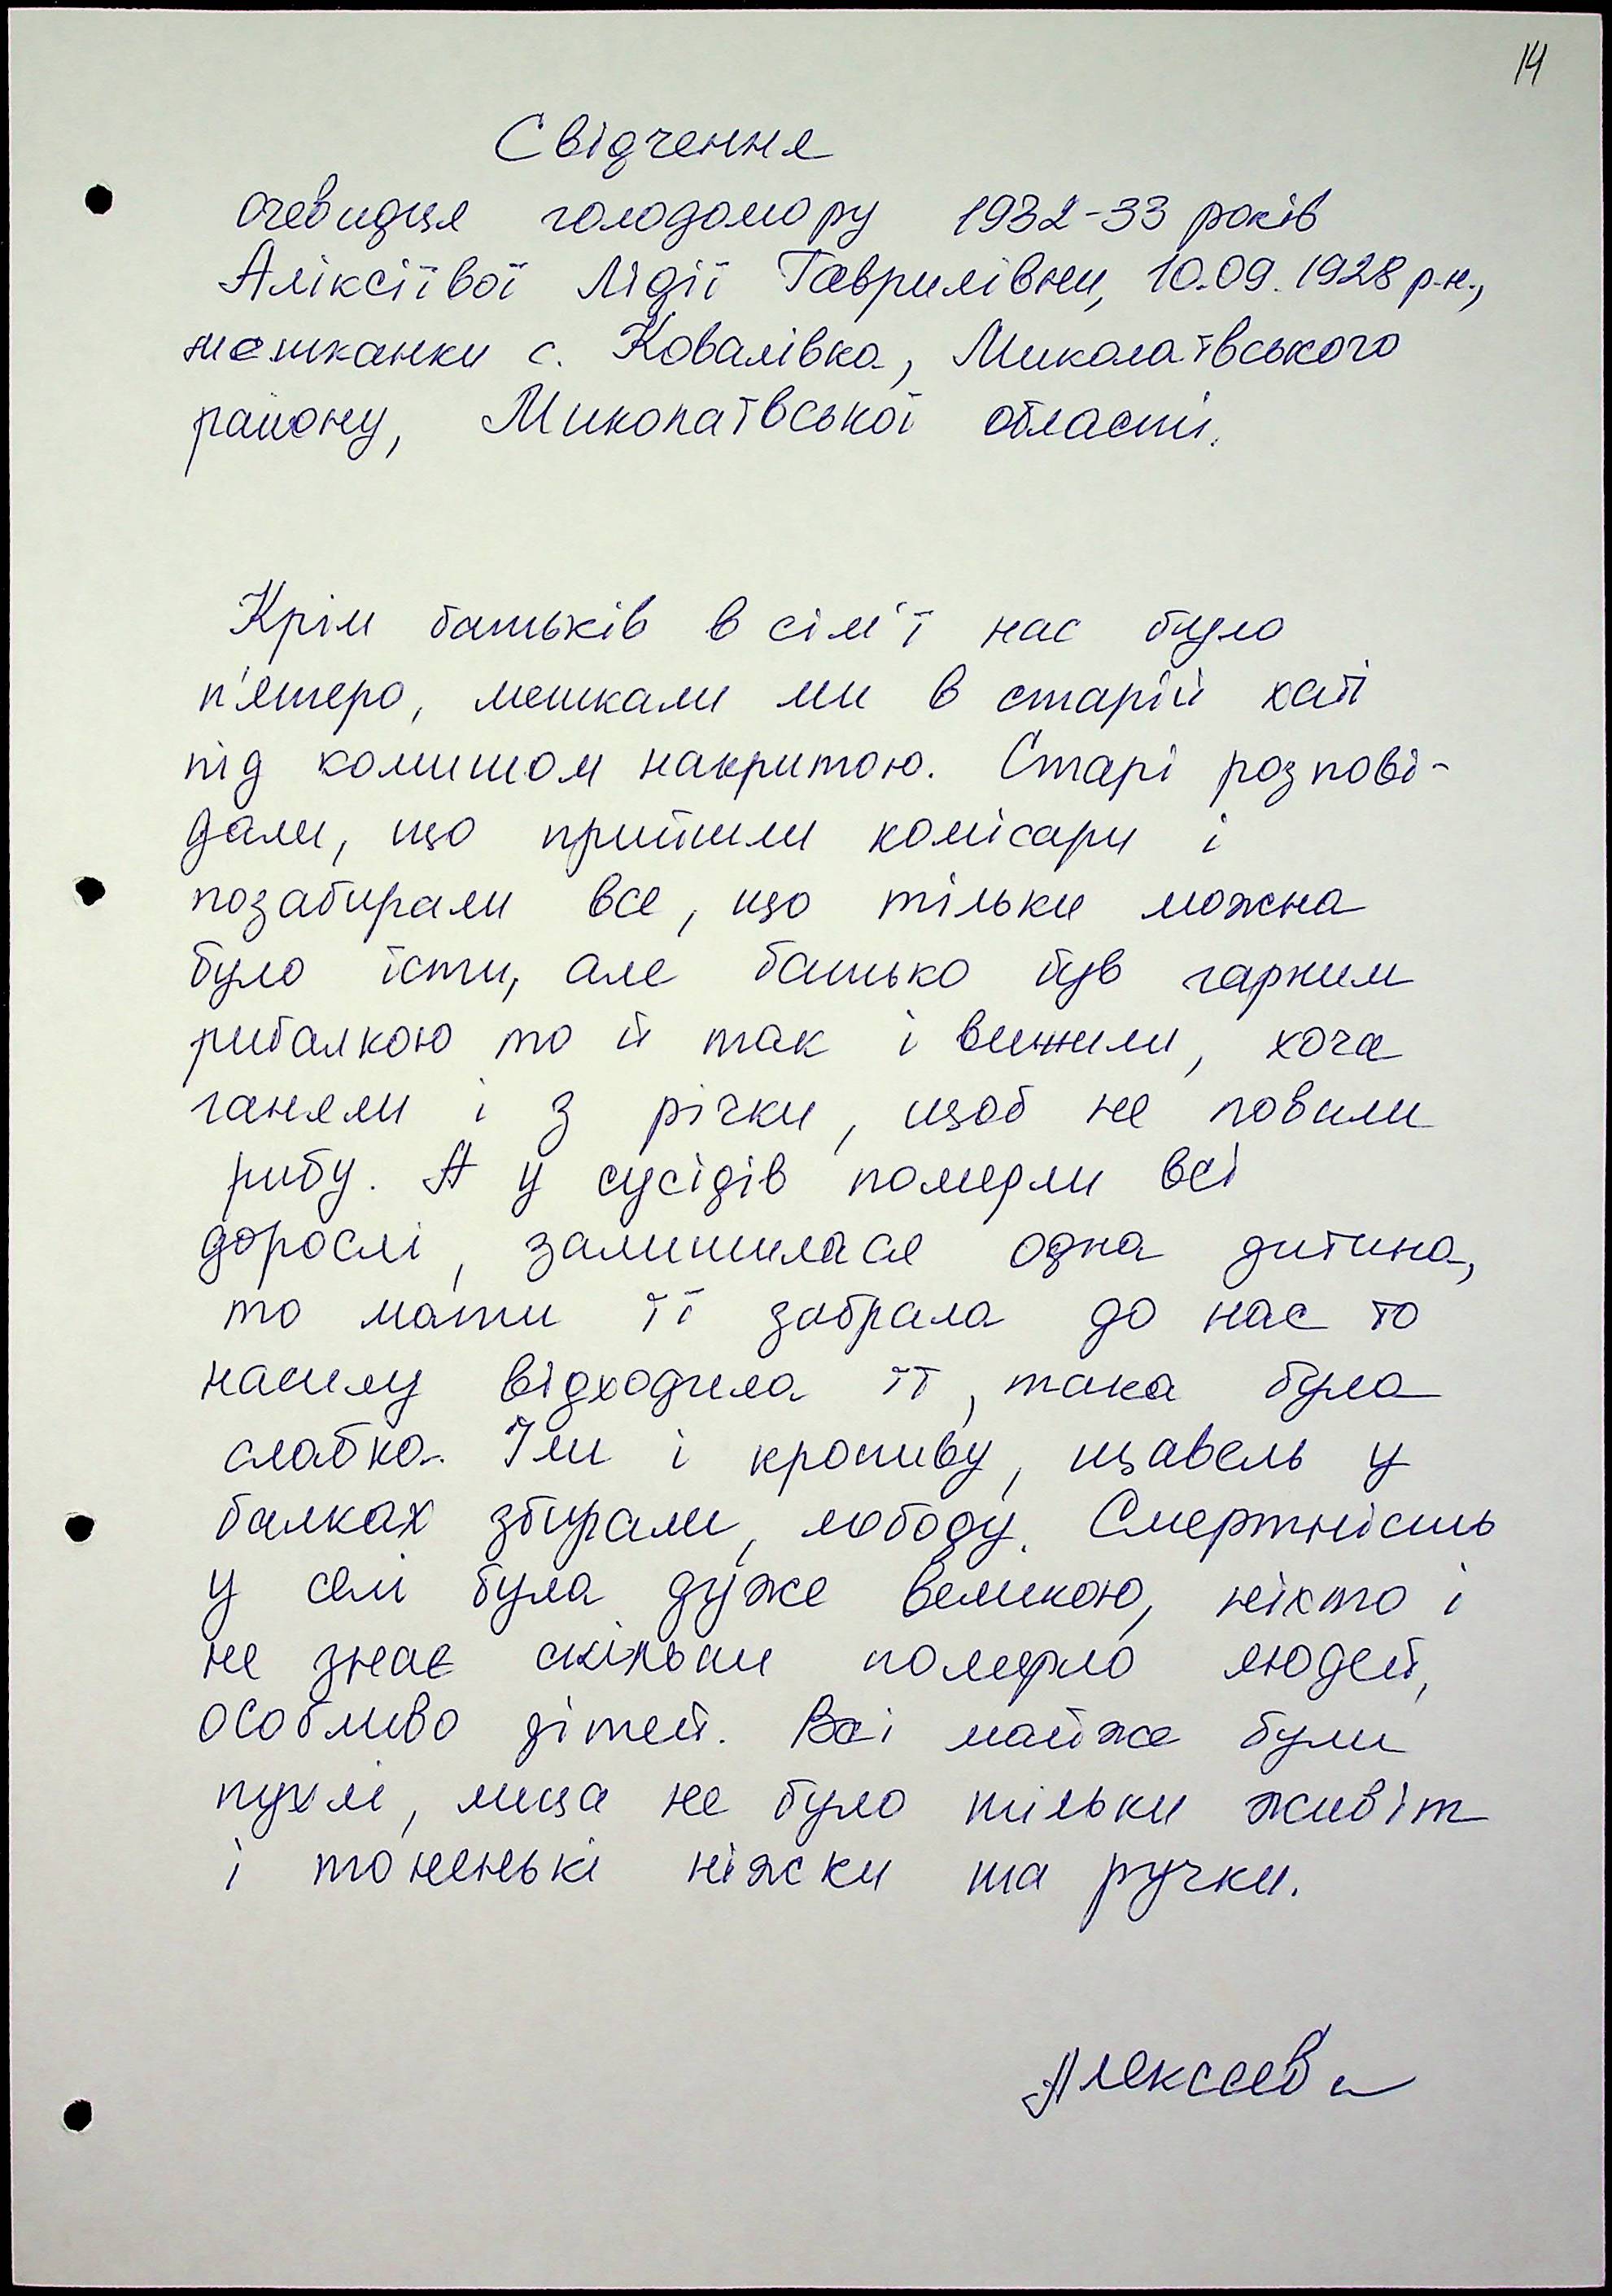 14
Свідчення
очевидця голодомору 1932-33 років
Аліксіївої Лідії Гаврилівни, 10.09.1928 р.н.,
мешканки с. Ковалівка, Миколаївського
району, Миколаївської області.
Крім батьків в сім'ї нас було
п'ятеро, мешкали ми в старій хаті
під комишом накритою. Старі розпові-
дали, що прийшли комісари і
позабирали все, що тільки можна
було їсти, але батько був гарним
рибалкою то й так і вижили, хоча
ганяли і з річки, щоб не ловили
рибу. А у сусідів померли всі
дорослі, залишилася одна дитина,
то мати її забрала до нас то
насилу відходила її, така була
слабка. Їли і кропиву, щавель у
балках збирали, лободу. Смертність
у селі була дуже великою, ніхто і
не знає скільки померло людей,
особливо дітей. Всі майже були
пухлі, лиця не було тільки живіт
і тоненькі ніжки та ручки.
Алексеева